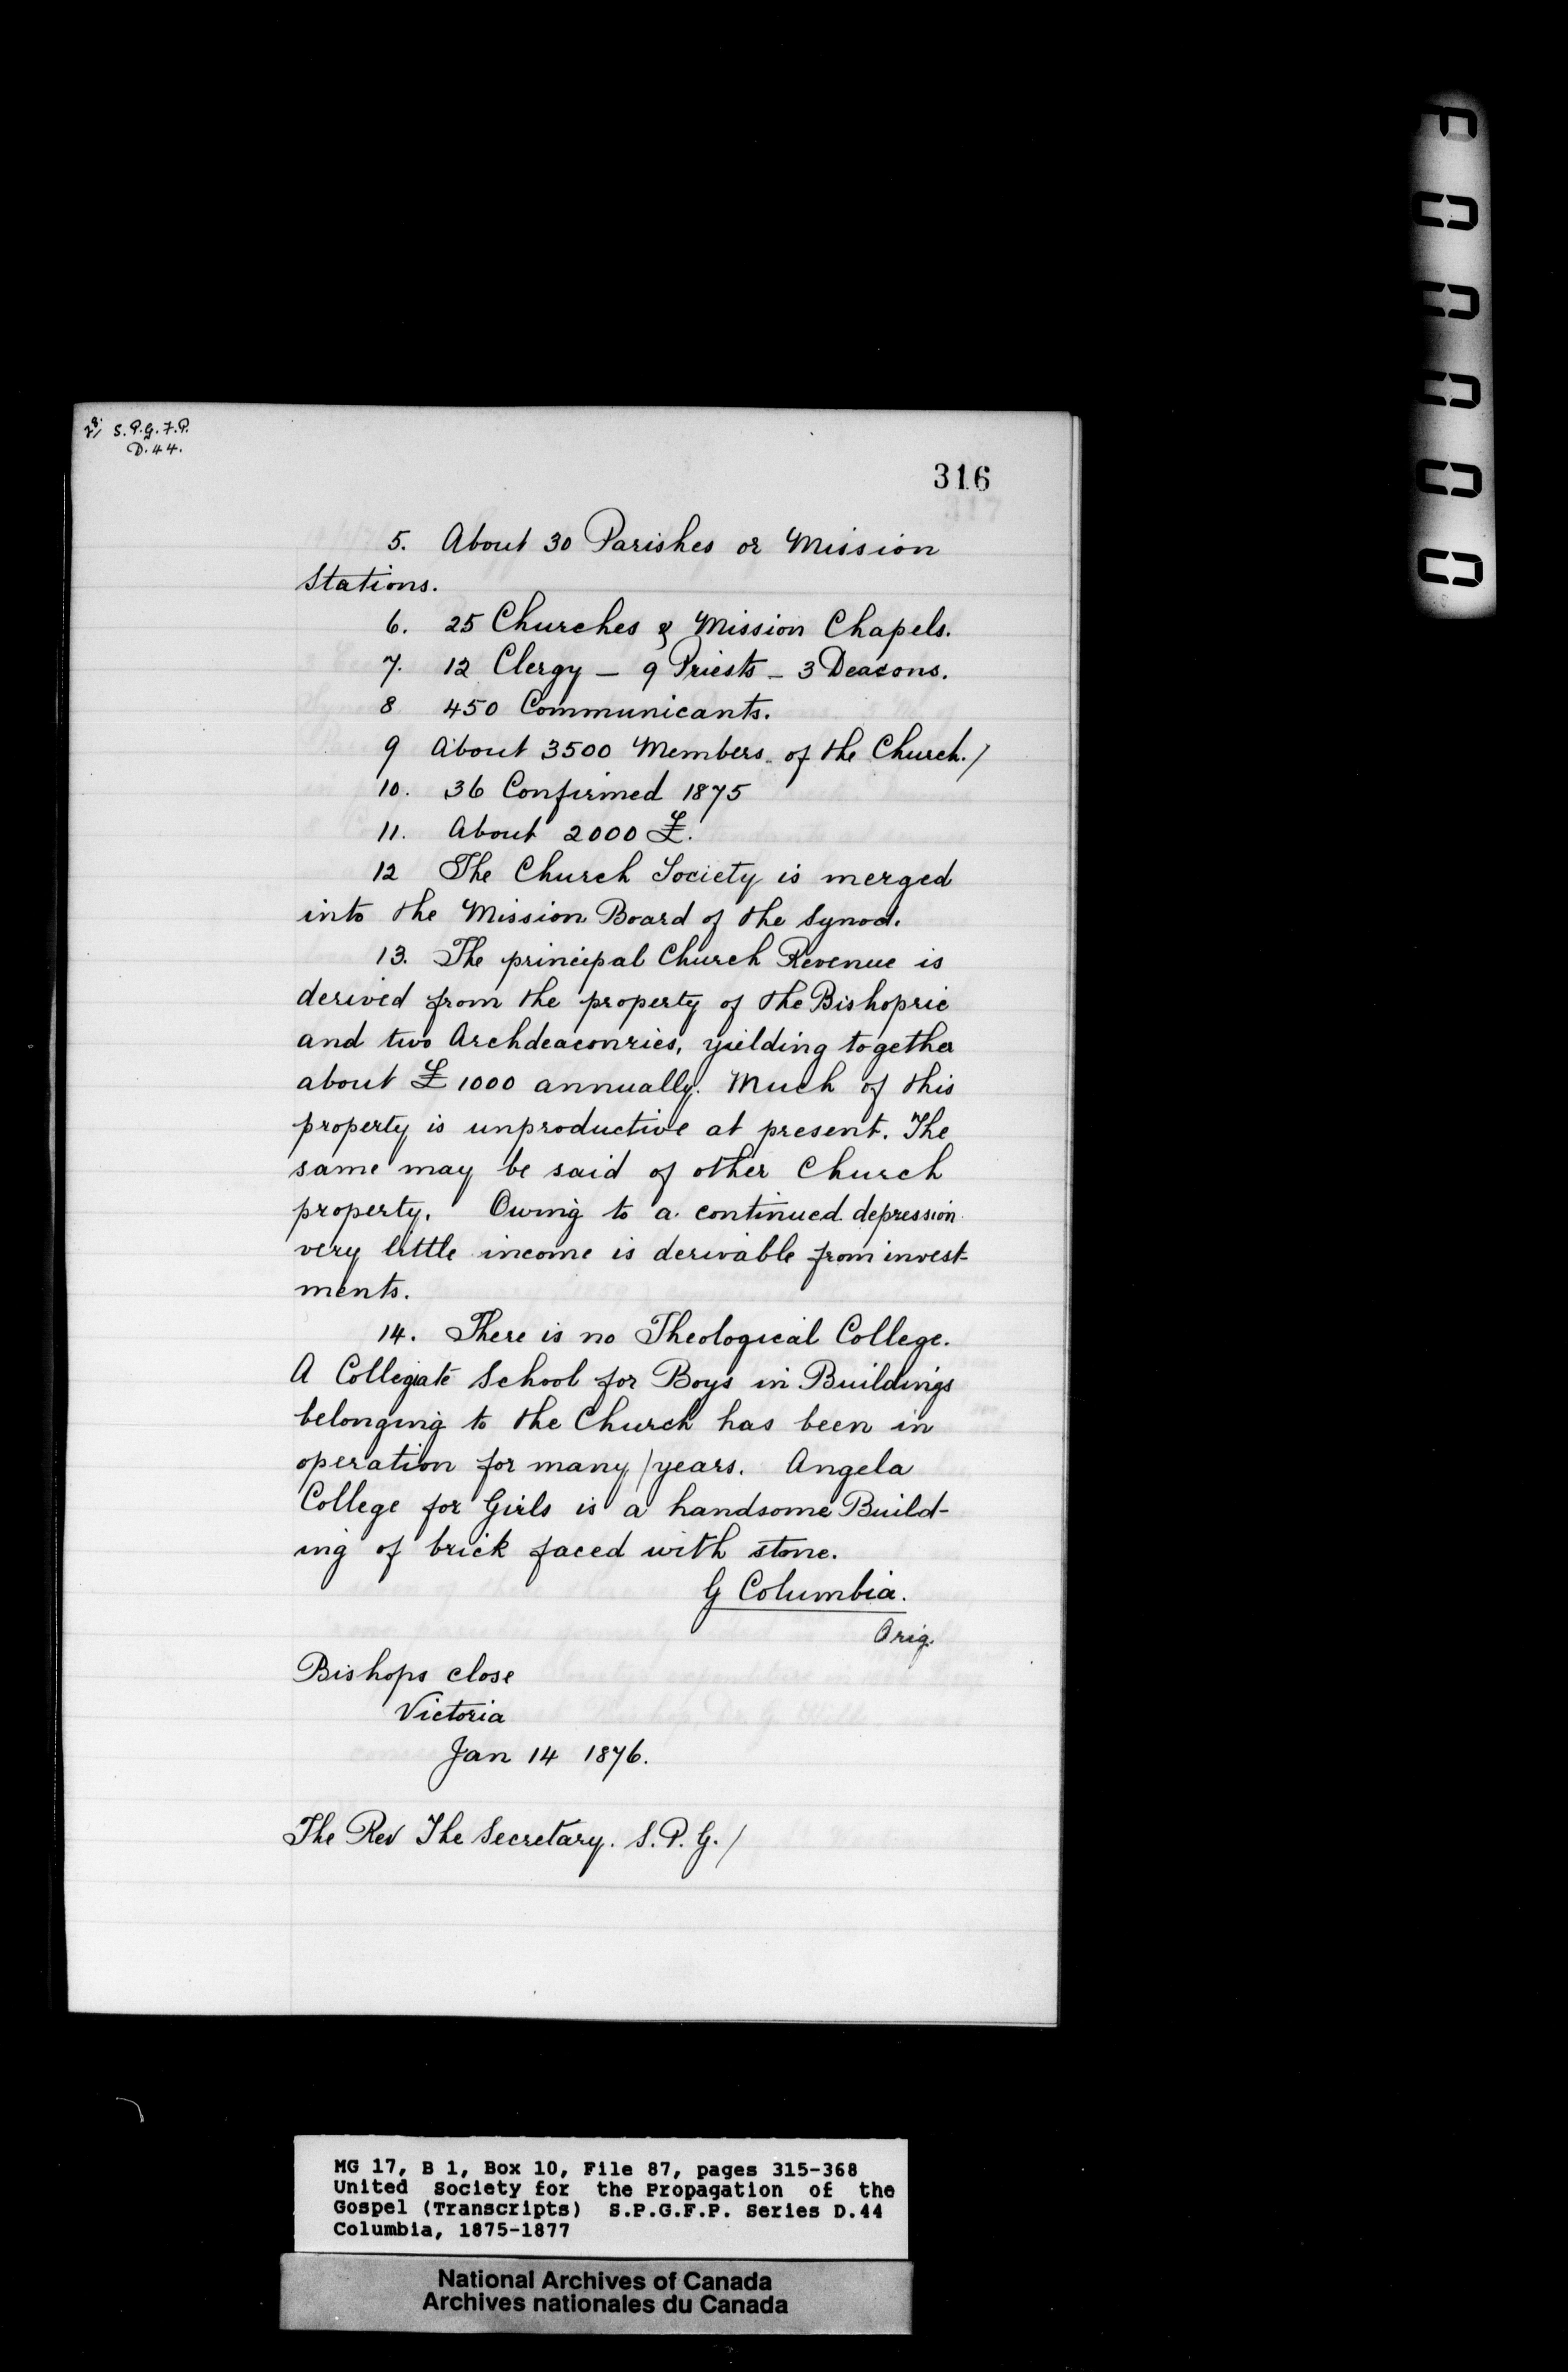 S.P.G.F.P.
D.44.
316
5. About 30 Parishes or Mission
Stations.
6. 25 Churches & Mission Chapels.
7. 12 Clergy – 9 Priests – 3 Deacons.
8 450 Communicants.
9 About 3500 Members of the Church./
10. 36 Confirmed 1875
11. About 2000 £.
12 The Church Society is merged
into the Mission Board of the Synod.
13. The principal Church Revenue is
derived from the property of the Bishopric
and two Archdeaconries, yielding together
about £1000 annually. Much of this
property is unproductive at present. The
same may be said of other Church
property. Owing to a continued depression
very little income is derivable from invest-
ments.
14. There is no Theological College.
A Collegiate School for Boys in Buildings
belonging to the Church has been in
operation for many / years. Angela
College for Girls is a handsome Build-
ing of brick faced with stone.
G Columbia.
Orig.
Bishops close
Victoria
Jan 14 1876.
The Rev The Secretary. S.P.G./
MG 17, B 1, Box 10, File 87, pages 315-368
United Society for the Propagation of the
Gospel (Transcripts) S.P.G.F.P. Series D.44
Columbia, 1875-1877
National Archives of Canada
Archives nationales du Canada